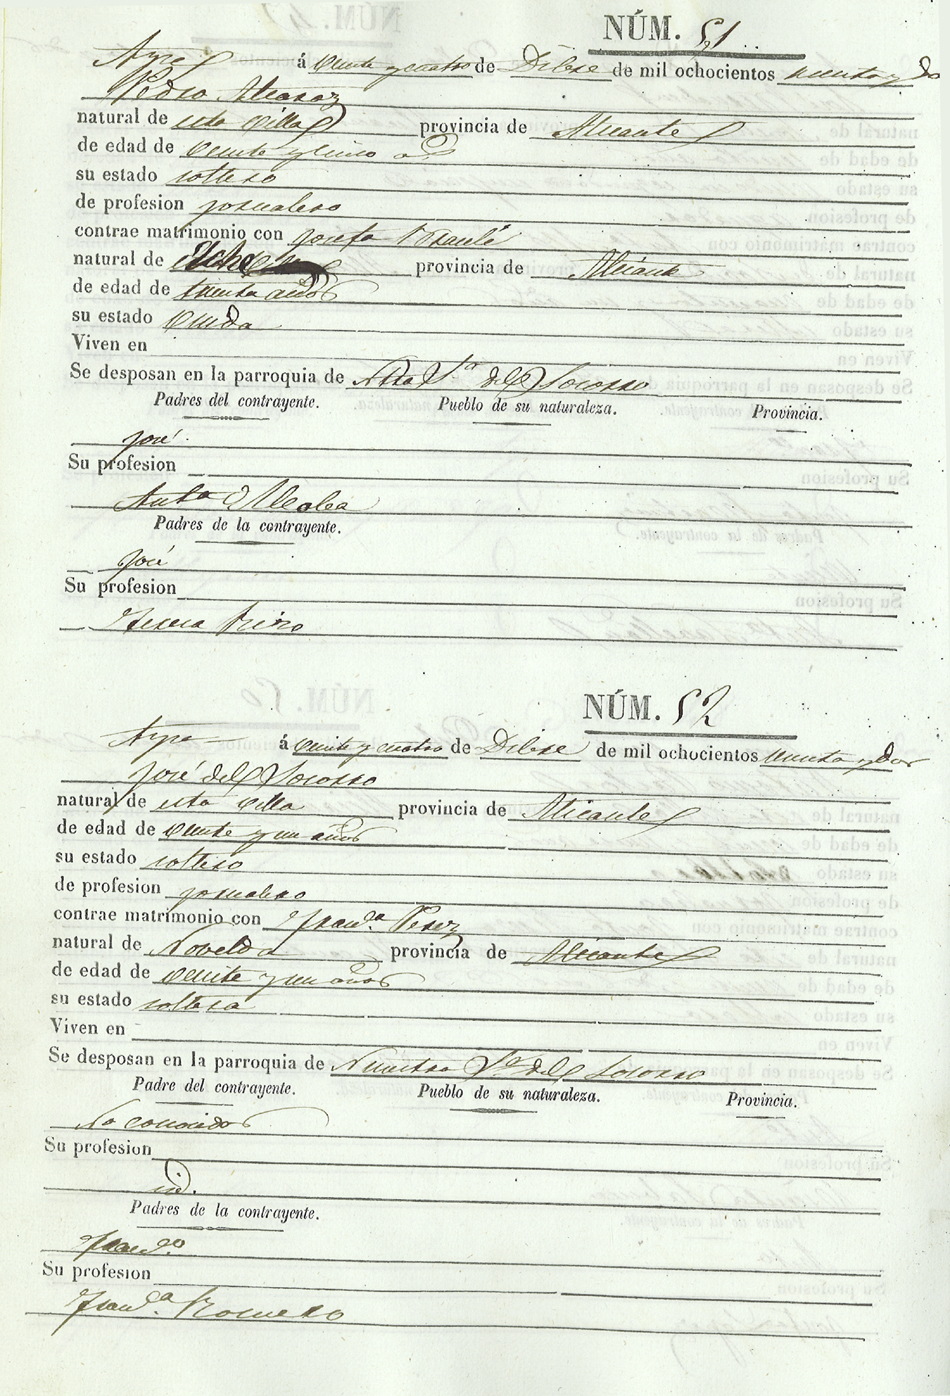 NÚM. 51
Aspe á veinte y cuatro de Dibre de mil ochocientos cuarenta y do
Pedro Alcaraz
natural de esta Villa provincia de Alicante
de edad de veinte y cinco as
su estado soltero
de profesion jornalero
contrae matrimonio con Josefa
natural de Elche provincia de Alicante
de edad de treinta años
su estado viuda
Viven en
Se desposan en la parroquia de Ntra Sra del Socorro
Padres del contrayente. Pueblo de su naturaleza. Provincia.
José
Su profesion
Anta Alcolea
Padres de la contrayente.
José
Su profesion
Teresa
NÚM. 52
Aspe á veinte y cuatro de Dibre de mil ochocientos cuarenta y dos
José del Socorro
natural de esta villa provincia de Alicante
de edad de veinte y un años
su estado soltero
de profesion jornalero
contrae matrimonio con Franca Perez
natural de Novelda provincia de Alicante
de edad de veinte y un años
su estado soltera
Viven en
Se desposan en la parroquia de Nuestra Sra del Socorro
Padre del contrayente. Pueblo de su naturaleza. Provincia.
No conocidos
Su profesion
id.
Padres de la contrayente.
Franco
Su profesion
Franca Romero